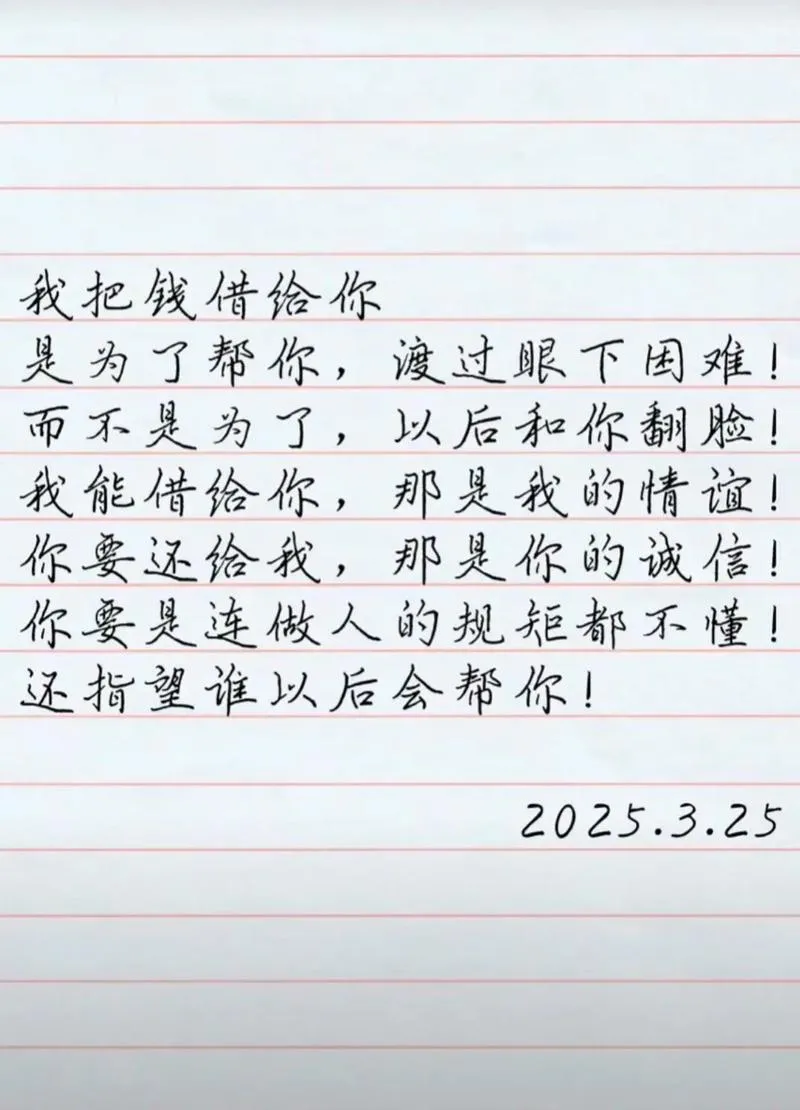 我把钱借给你
是为了帮你，渡过眼下困难！
而不是为了，以后和你翻脸！
我能借给你，那是我的情谊！
你要还给我，那是你的诚信！
你要是连做人的规矩都不懂！
还指望谁以后会帮你！
2025.3.25